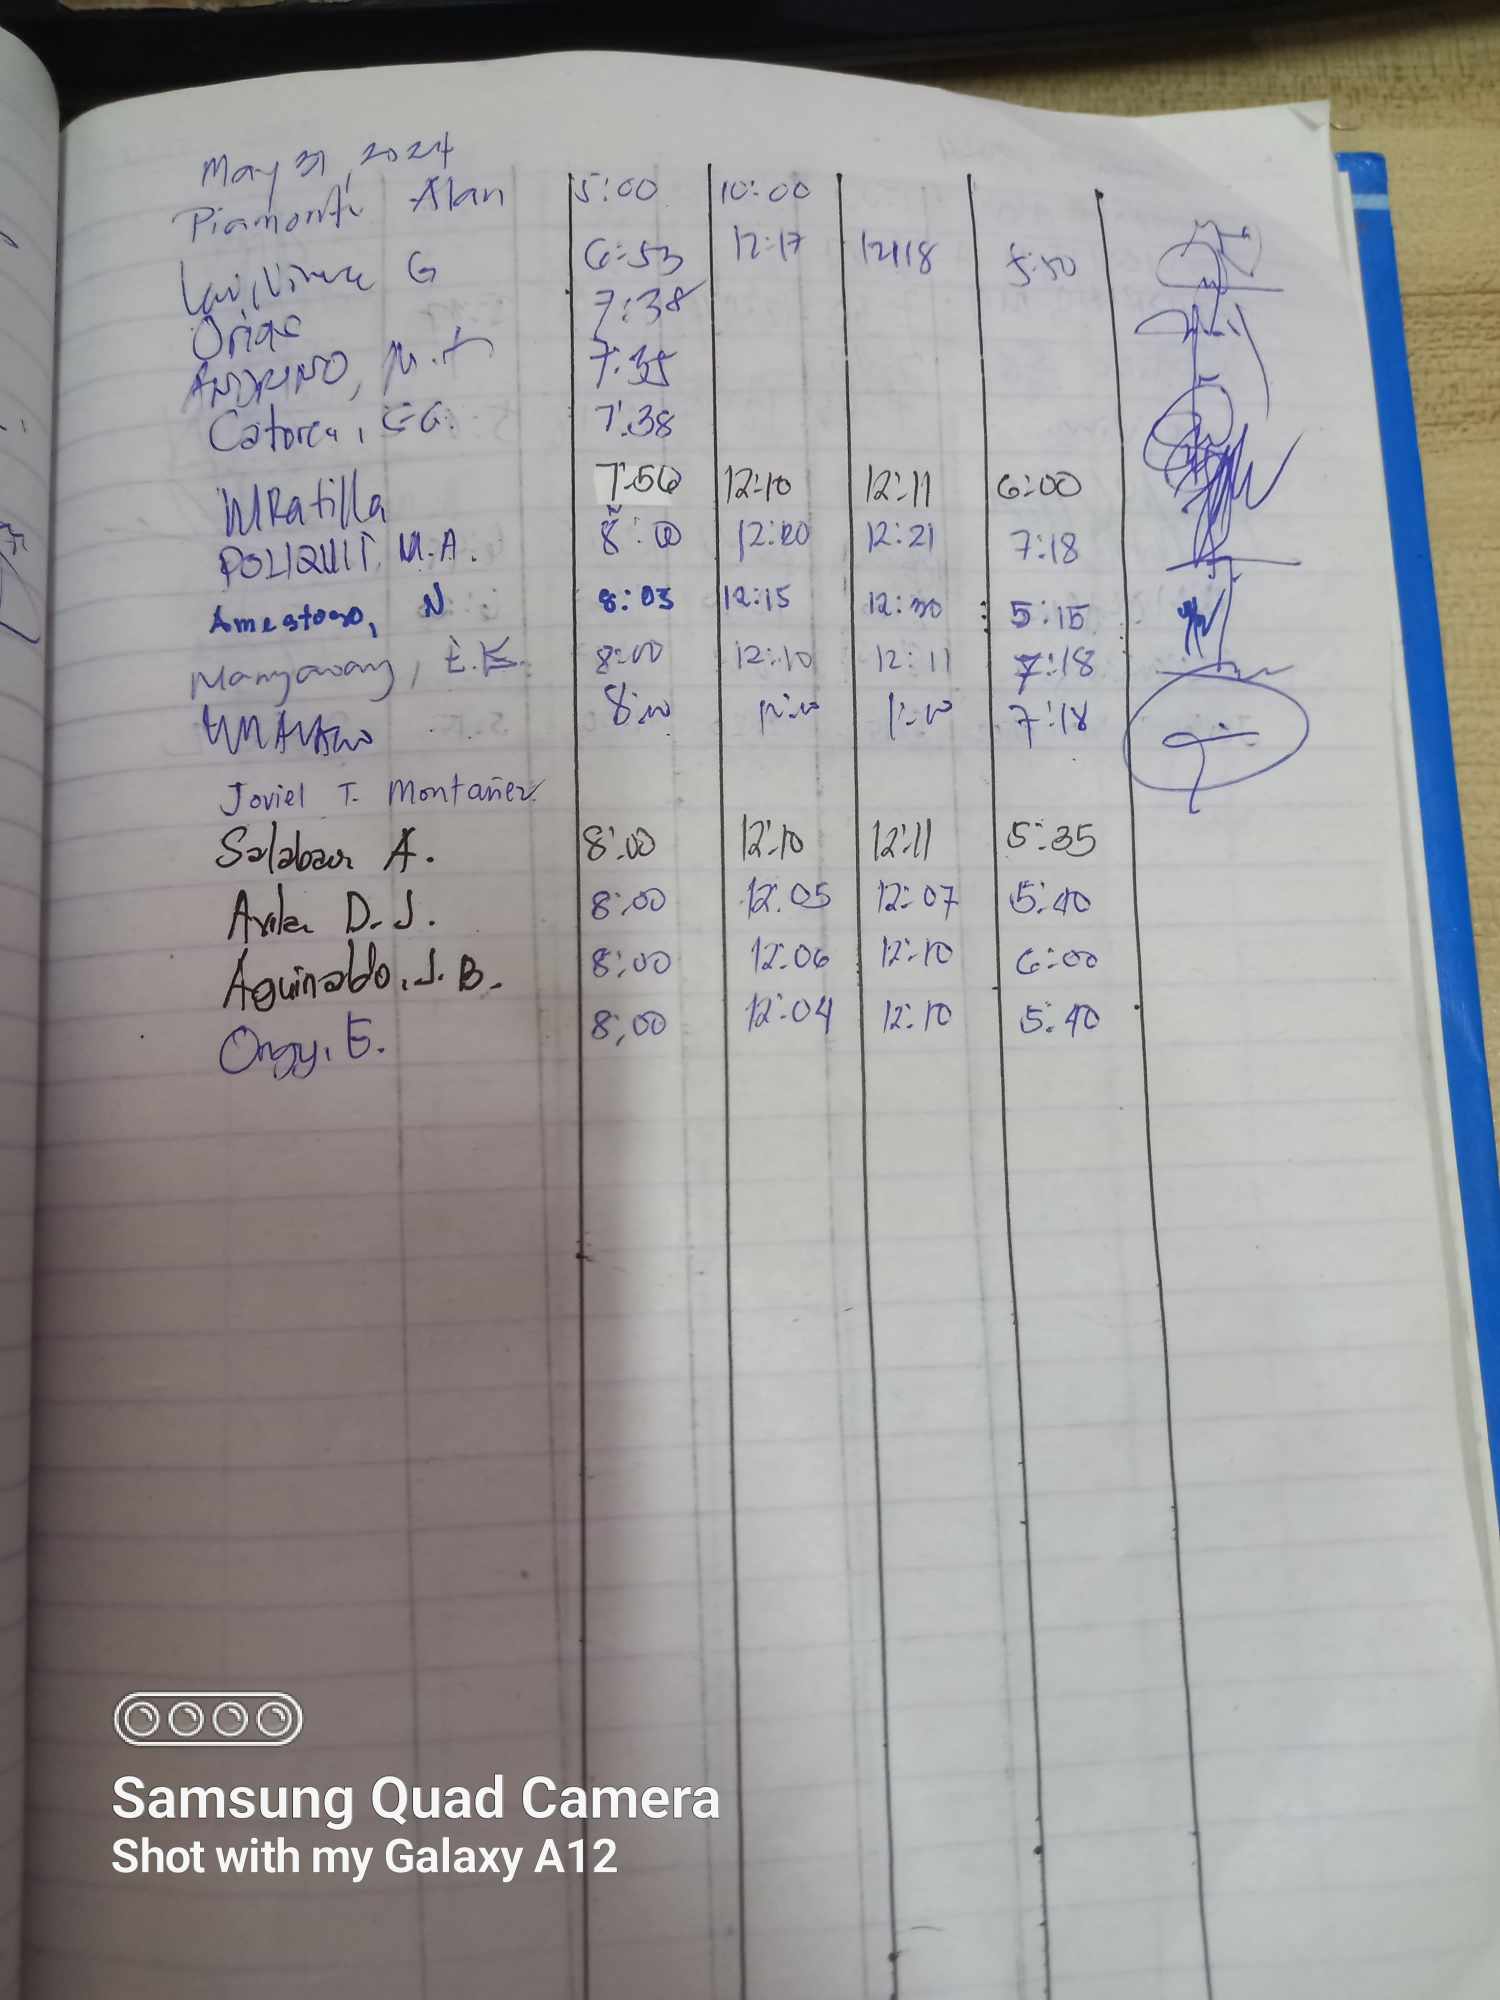 May 31, 2024
Piamonte Alan 5:00 10:00
G 6:53 12:17 12:18 5:50
7:38
ANDRINO, M. 7:35
Catorca, 7:38
MRatilla 7:56 12:10 12:11 6:00
POLIQUIT, M.A. 8:00 12:20 12:21 7:18
Amestoso, N 8:03 12:15 12:30 5:15
Mangawang, E.K. 8:00 12:10 12:11 7:18
8:00 12:10 1:10 7:18
Joviel T. Montañez
Salabao A. 8:00 12:10 12:11 5:35
Avila D.J. 8:00 12:05 12:07 5:40
Aguinaldo, J.B. 8:00 12:06 12:10 6:00
Ongy, E. 8:00 12:04 12:10 5:40
Samsung Quad Camera
Shot with my Galaxy A12